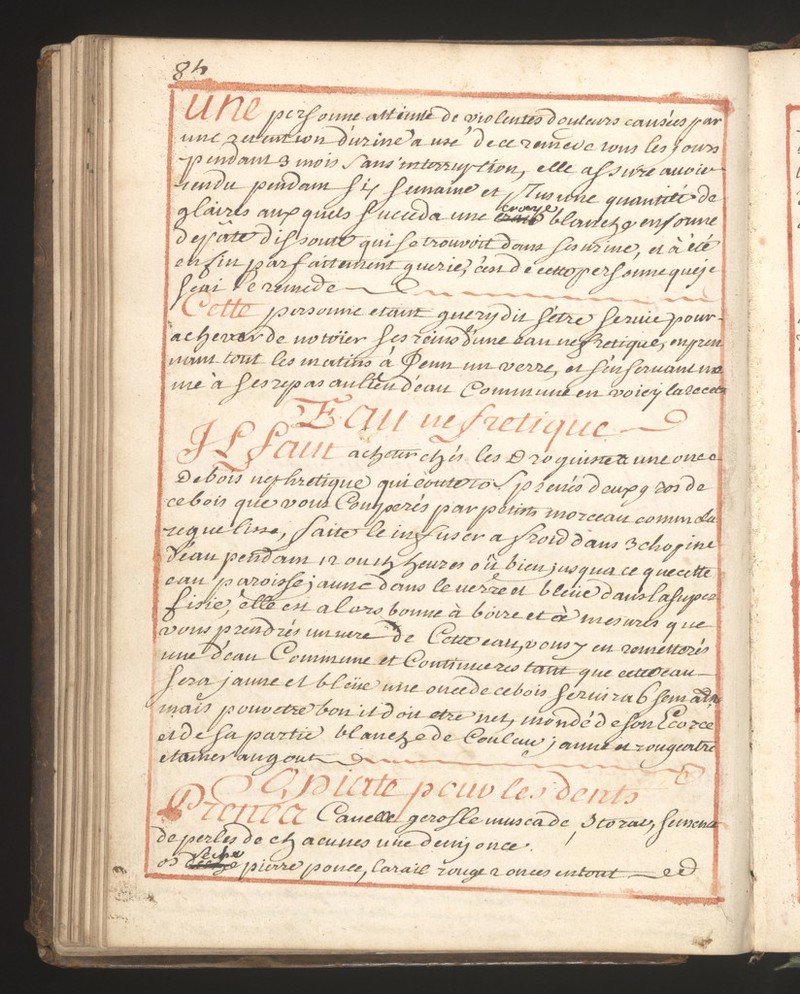 84
Une personne atteinte de violentes douleurs causées par
une retention d'urine a usé de ce remede tous les jours
pendant 3 mois sans interruption, elle assure avoir
rendu pendant six semaine et plus une quantité de
glaires aux quels succeda une craye blanche en forme
de pâte dissoute qui se trouvoit dans ses urine, et à été
enfin parfaitement guerie, c'est de cette personne que je
scai le remede
Cette personne etant guery dit s'etre servie pour
achever de nettoïer ses reins d'une eau nefretique, en pren
nant tout les matins à Jeun un verre, et s'en servant me
me à ses repas au lieu d'eau Commune en voicy la recet
Eau nefretique
Il faut acheter chés les Droguistes une once
de bois nephretique qui coute 10 s prenés deux gros de
ce bois que vous Couperés par petits morceau comme la
reguelisse, faite le infuser a froid dans 3 chopine
d'eau pendant 12 ou 15 heures où bien jusqua ce que cette
eau paroisse jaune dans le verre et bleüe dans la super
ficie, elle est alors bonne à boire et à mesures que
vous prendrés un verre de Cette eau, vous y en remetterés
une d'eau Commune et Continuerés tant que cette eau
sera jaune et bleüe une once de ce bois servira 6 semaine
mais pour etre bon il doit etre net, mondé de son Ecorce
et de sa partie blanche de Couleur jaune et rougeatre
et amer au gout
Opiate pour les dents
Prenéz Canelle gerofle muscade, storax, semence
de perles de chacunes une demy once
os de seche pierre ponce, Corail rouge 2 onces en tout